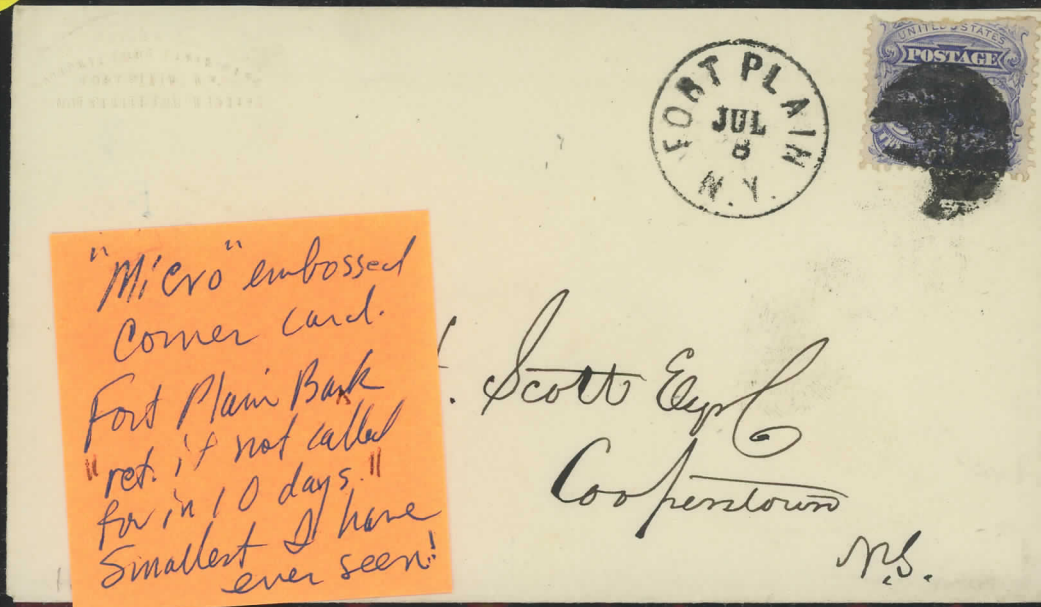 FORT PLAIN
JUL
8
N.Y.
UNITED STATES
POSTAGE
"Micro" embossed
Corner card.
Fort Plain Bank
"ret. if not called
for in 10 days."
Smallest I have
ever seen!
Scott Esqr
Cooperstown
N.Y.